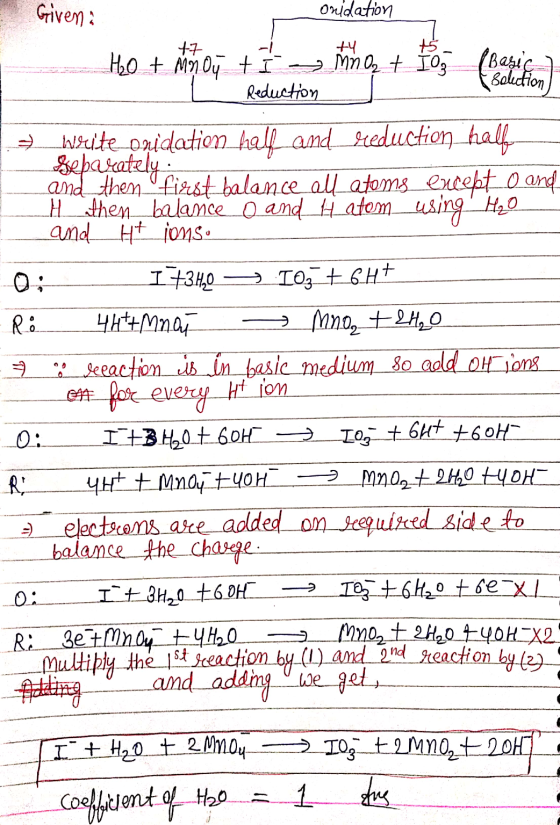 Given:
oxidation
+7 -1 +4 +5
H₂O + MnO₄⁻ + I⁻ → MnO₂ + IO₃⁻ (Basic Solution)
Reduction
⇒ write oxidation half and reduction half
separately.
and then first balance all atoms except O and
H then balance O and H atom using H₂O
and H⁺ ions.
O: I⁻+3H₂O → IO₃⁻ + 6H⁺
R: 4H⁺+MnO₄⁻ → MnO₂ + 2H₂O
⇒ ∵ reaction is in basic medium so add OH⁻ ions
for every H⁺ ion
O: I⁻+3H₂O + 6OH⁻ → IO₃⁻ + 6H⁺ + 6OH⁻
R: 4H⁺ + MnO₄⁻ + 4OH⁻ → MnO₂ + 2H₂O + 4OH⁻
⇒ electrons are added on required side to
balance the charge.
O: I⁻ + 3H₂O + 6OH⁻ → IO₃⁻ + 6H₂O + 6e⁻ X 1
R: 3e⁻+MnO₄⁻ + 4H₂O → MnO₂ + 2H₂O + 4OH⁻ X2
Multiply the 1st reaction by (1) and 2nd reaction by (2)
Adding and adding we get,
I⁻ + H₂O + 2MnO₄⁻ → IO₃⁻ + 2MnO₂ + 2OH⁻
Coefficient of H₂O = 1 Ans